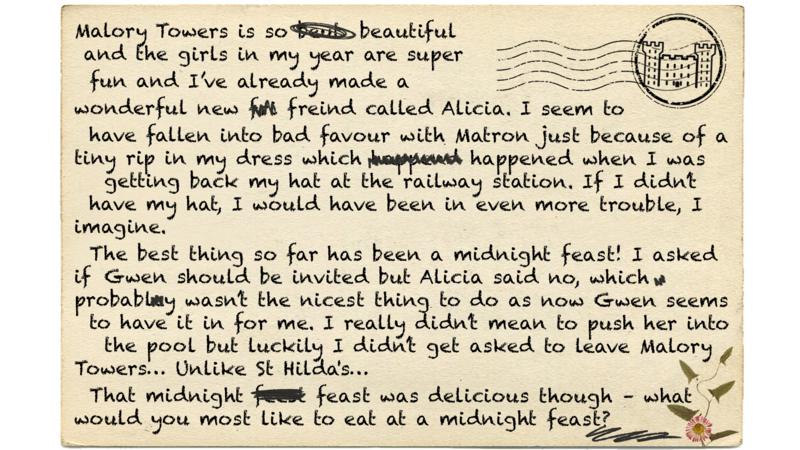 Malory Towers is so beautiful
and the girls in my year are super
fun and I've already made a
wonderful new freind called Alicia. I seem to
have fallen into bad favour with Matron just because of a
tiny rip in my dress which happened happened when I was
getting back my hat at the railway station. If I didn't
have my hat, I would have been in even more trouble, I
imagine.
The best thing so far has been a midnight feast! I asked
if Gwen should be invited but Alicia said no, which
probably wasn't the nicest thing to do as now Gwen seems
to have it in for me. I really didn't mean to push her into
the pool but luckily I didn't get asked to leave Malory
Towers... Unlike St Hilda's...
That midnight feest feast was delicious though - what
would you most like to eat at a midnight feast?